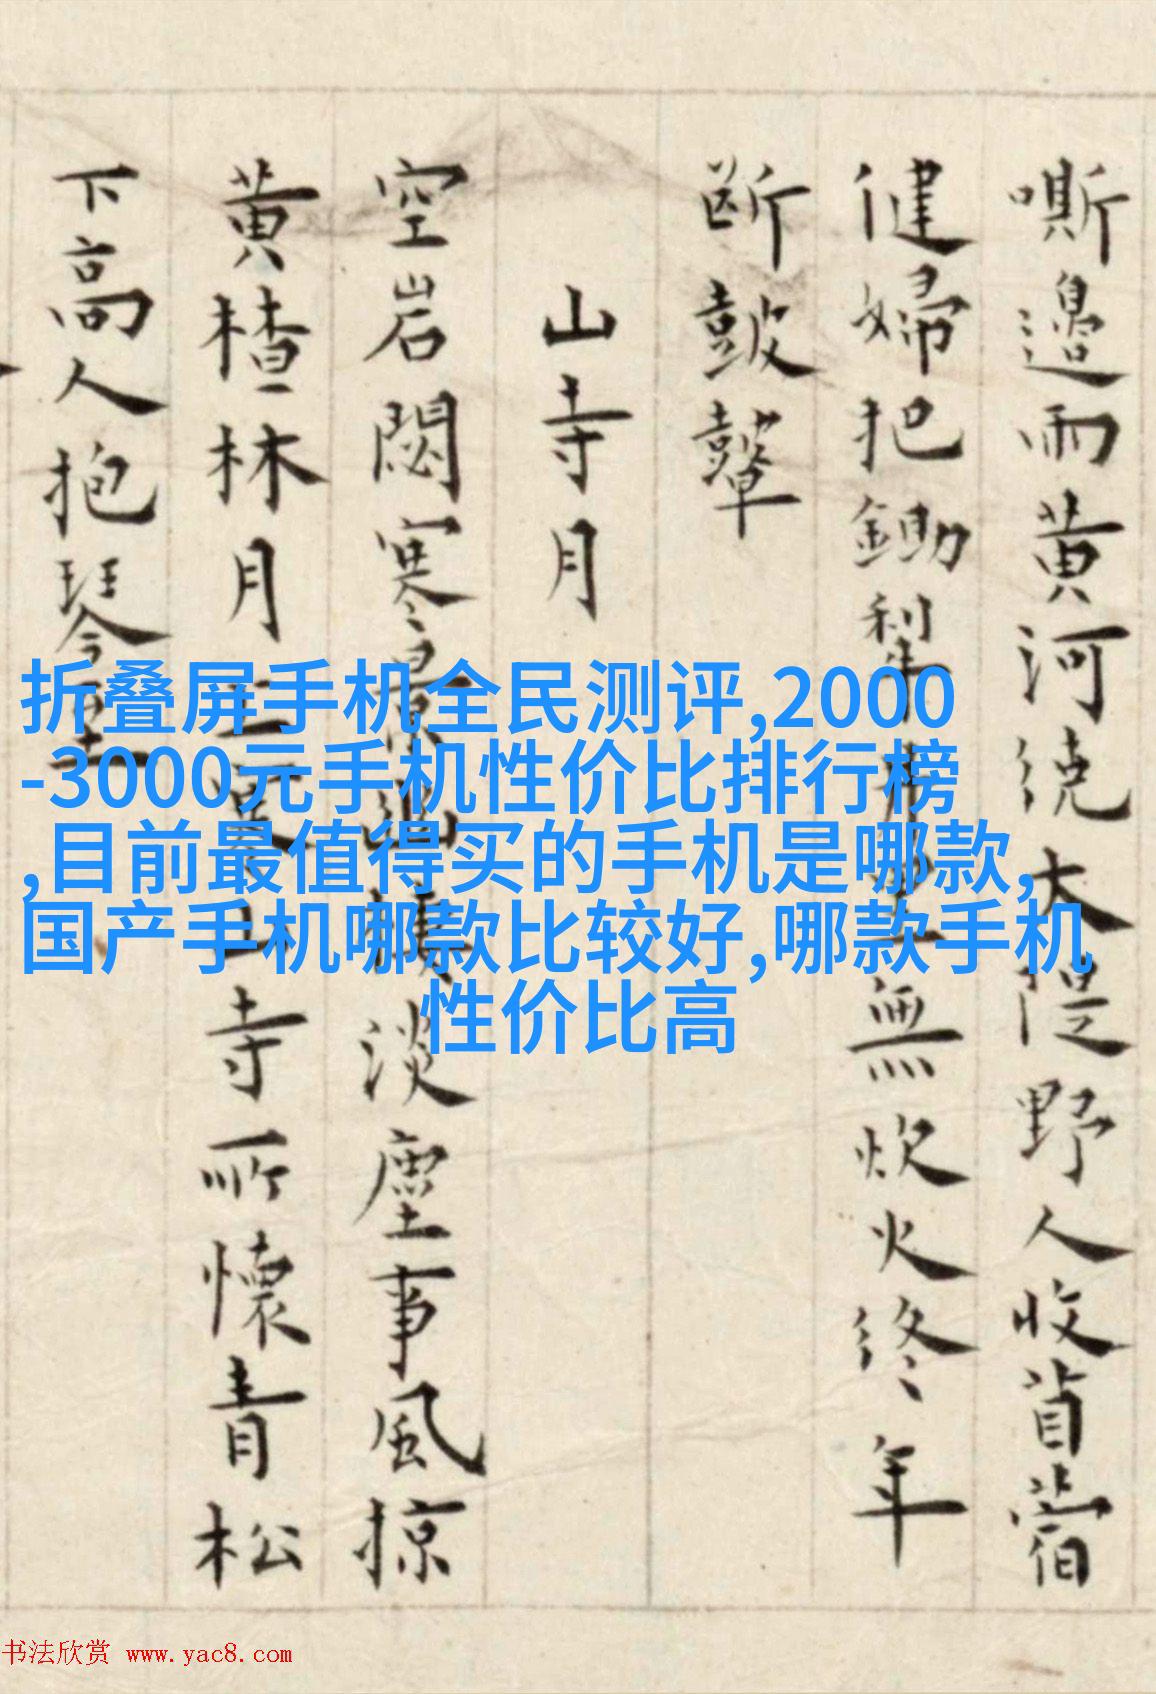 嘶邊雨黄河绕大隄野人收苜蓿
健婦把鋤犁無炊火終年
斷鼓鼙
山寺月
空岩閟寒景淡塵事風掠
黄楂林月寺所懷青松
下高人抱琴
折叠屏手机全民测评,2000
-3000元手机性价比排行榜
,目前最值得买的手机是哪款,
国产手机哪款比较好,哪款手机
性价比高
书法欣赏 www.yac8.com